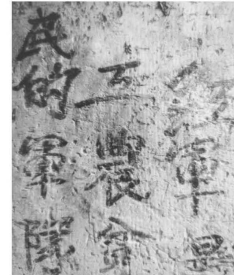 紅軍是
工農
民的軍隊